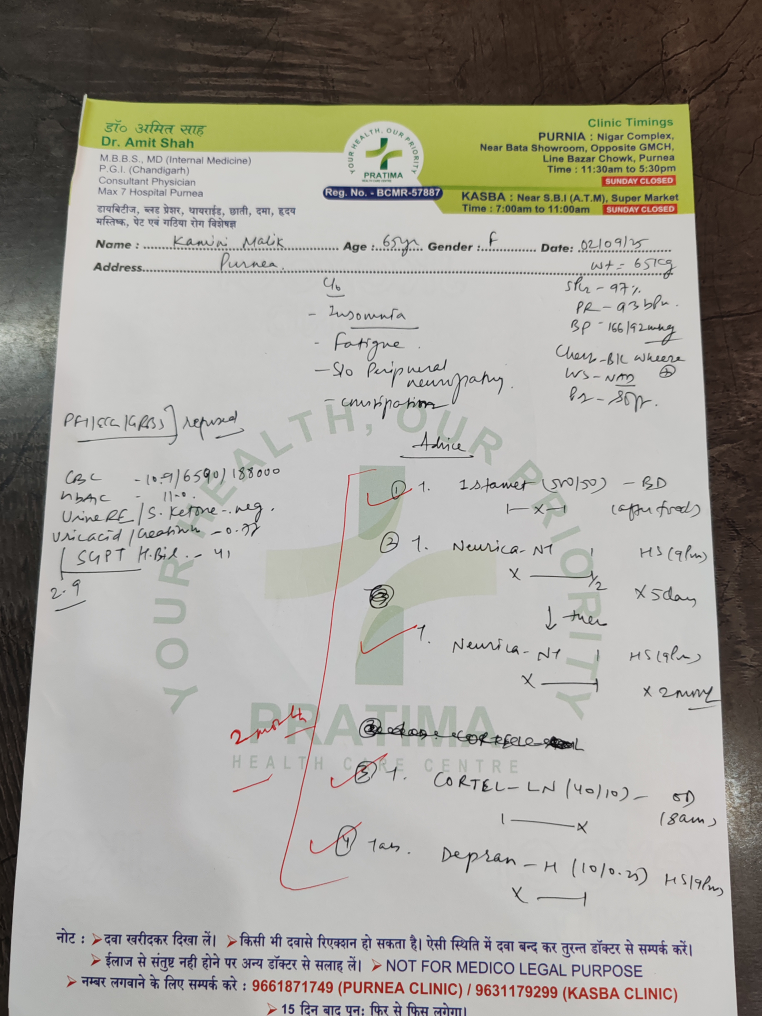 डॉ० अमित साह
Dr. Amit Shah
M.B.B.S., MD (Internal Medicine)
P.G.I. (Chandigarh)
Consultant Physician
Max 7 Hospital Purnea
डायबिटीज, ब्लड प्रेशर, थायराईड, छाती, दमा, ह्रदय
मस्तिष्क, पेट एवं गठिया रोग विशेषज्ञ
YOUR HEALTH, OUR PRIORITY
PRATIMA
HEALTH CARE CENTRE
Reg. No. - BCMR-57887
Clinic Timings
PURNIA : Nigar Complex,
Near Bata Showroom, Opposite GMCH,
Line Bazar Chowk, Purnea
Time : 11:30am to 5:30pm
SUNDAY CLOSED
KASBA : Near S.B.I (A.T.M), Super Market
Time : 7:00am to 11:00am SUNDAY CLOSED
Name : Kamini Malik Age : 65yr Gender : F Date: 02/09/25
Address Purnea.
wt = 65kg
SPO2 - 97%
PR - 93 bpm.
BP - 166/92 mmHg
Chest - B/L wheeze +
C/o
- Insomnia
- Fatigue.
- S/o Peripheral neuropathy.
- Constipation
refused
CBC - 10.9/6590/188000
HbA1C - 11.0
Urine RE / S. Ketone - neg.
Uric acid / Creatinine - 0.77
SGPT 41
2.9
Advice
1 T. Istamet (500/50) - BD
1—X—1 (after food)
2 T. Neurica-NT HS (9pm)
X — 1/2 X 5 days
↓ then
T. Neurica-NT HS (9pm)
X — 1 X 2 month
2 month
3 T. CORTEL-LN (40/10) - OD
1 — X (8am)
4 Tab. Depran-H (10/0.25) HS (9pm)
X — 1
YOUR HEALTH, OUR PRIORITY
PRATIMA
HEALTH CARE CENTRE
नोट : ➤दवा खरीदकर दिखा लें। ➤किसी भी दवासे रिएक्शन हो सकता है। ऐसी स्थिति में दवा बन्द कर तुरन्त डॉक्टर से सम्पर्क करें।
➤ईलाज से संतुष्ट नही होने पर अन्य डॉक्टर से सलाह लें। ➤ NOT FOR MEDICO LEGAL PURPOSE
➤ नम्बर लगवाने के लिए सम्पर्क करे : 9661871749 (PURNEA CLINIC) / 9631179299 (KASBA CLINIC)
➤ 15 दिन बाद पुनः फिर से फिस लगेगा।